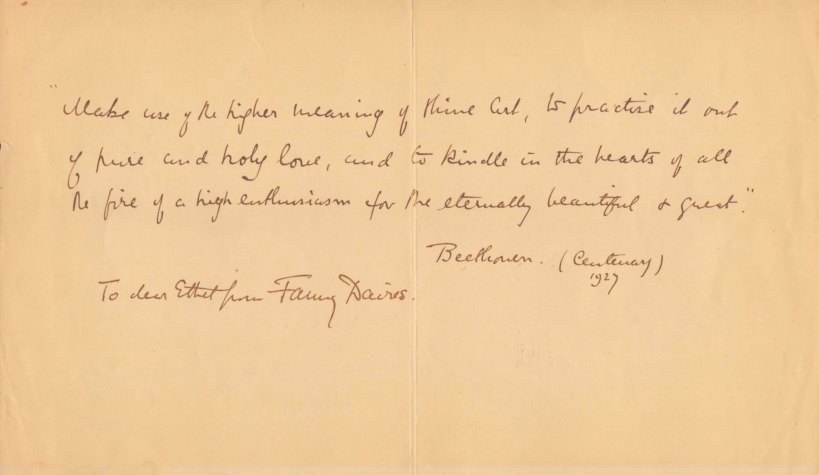 "Make use of the higher meaning of thine Art, to practise it out
of pure and holy love, and to kindle in the hearts of all
the fire of a high enthusiasm for the eternally beautiful & great."
Beethoven. (Centenary)
1927
To dear Ethel from Fanny Davies.